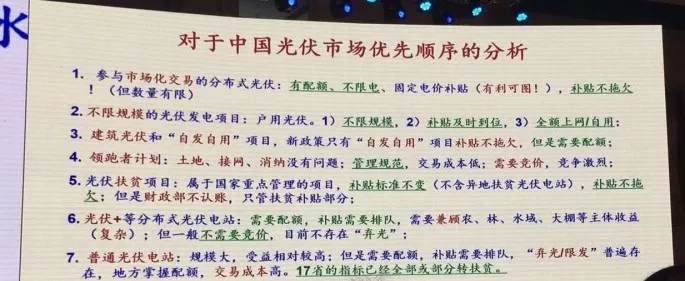 水
对于中国光伏市场优先顺序的分析
1. 参与市场化交易的分布式光伏：有配额、不限电、固定电价补贴（有利可图！），补贴不拖欠
！（但数量有限）
2. 不限规模的光伏发电项目：户用光伏。1）不限规模，2）补贴及时到位，3）全额上网/自用；
3. 建筑光伏和“自发自用”项目，新政策只有“自发自用”项目补贴不拖欠，但是需要配额；
4. 领跑者计划：土地、接网、消纳没有问题；管理规范，交易成本低；需要竞价，竞争激烈；
5. 光伏扶贫项目：属于国家重点管理的项目，补贴标准不变（不含异地扶贫光伏电站），补贴不拖
欠；但是财政部不认账，只管扶贫补贴部分；
6. 光伏+等分布式光伏电站：需要配额，补贴需要排队，需要兼顾农、林、水域、大棚等主体收益
（复杂）；但一般不需要竞价，目前不存在“弃光”；
7. 普通光伏电站：规模大，受益相对较高；但是需要配额，补贴需要排队，“弃光/限发”普遍存
在，地方掌握配额，交易成本高。17省的指标已经全部或部分转扶贫。